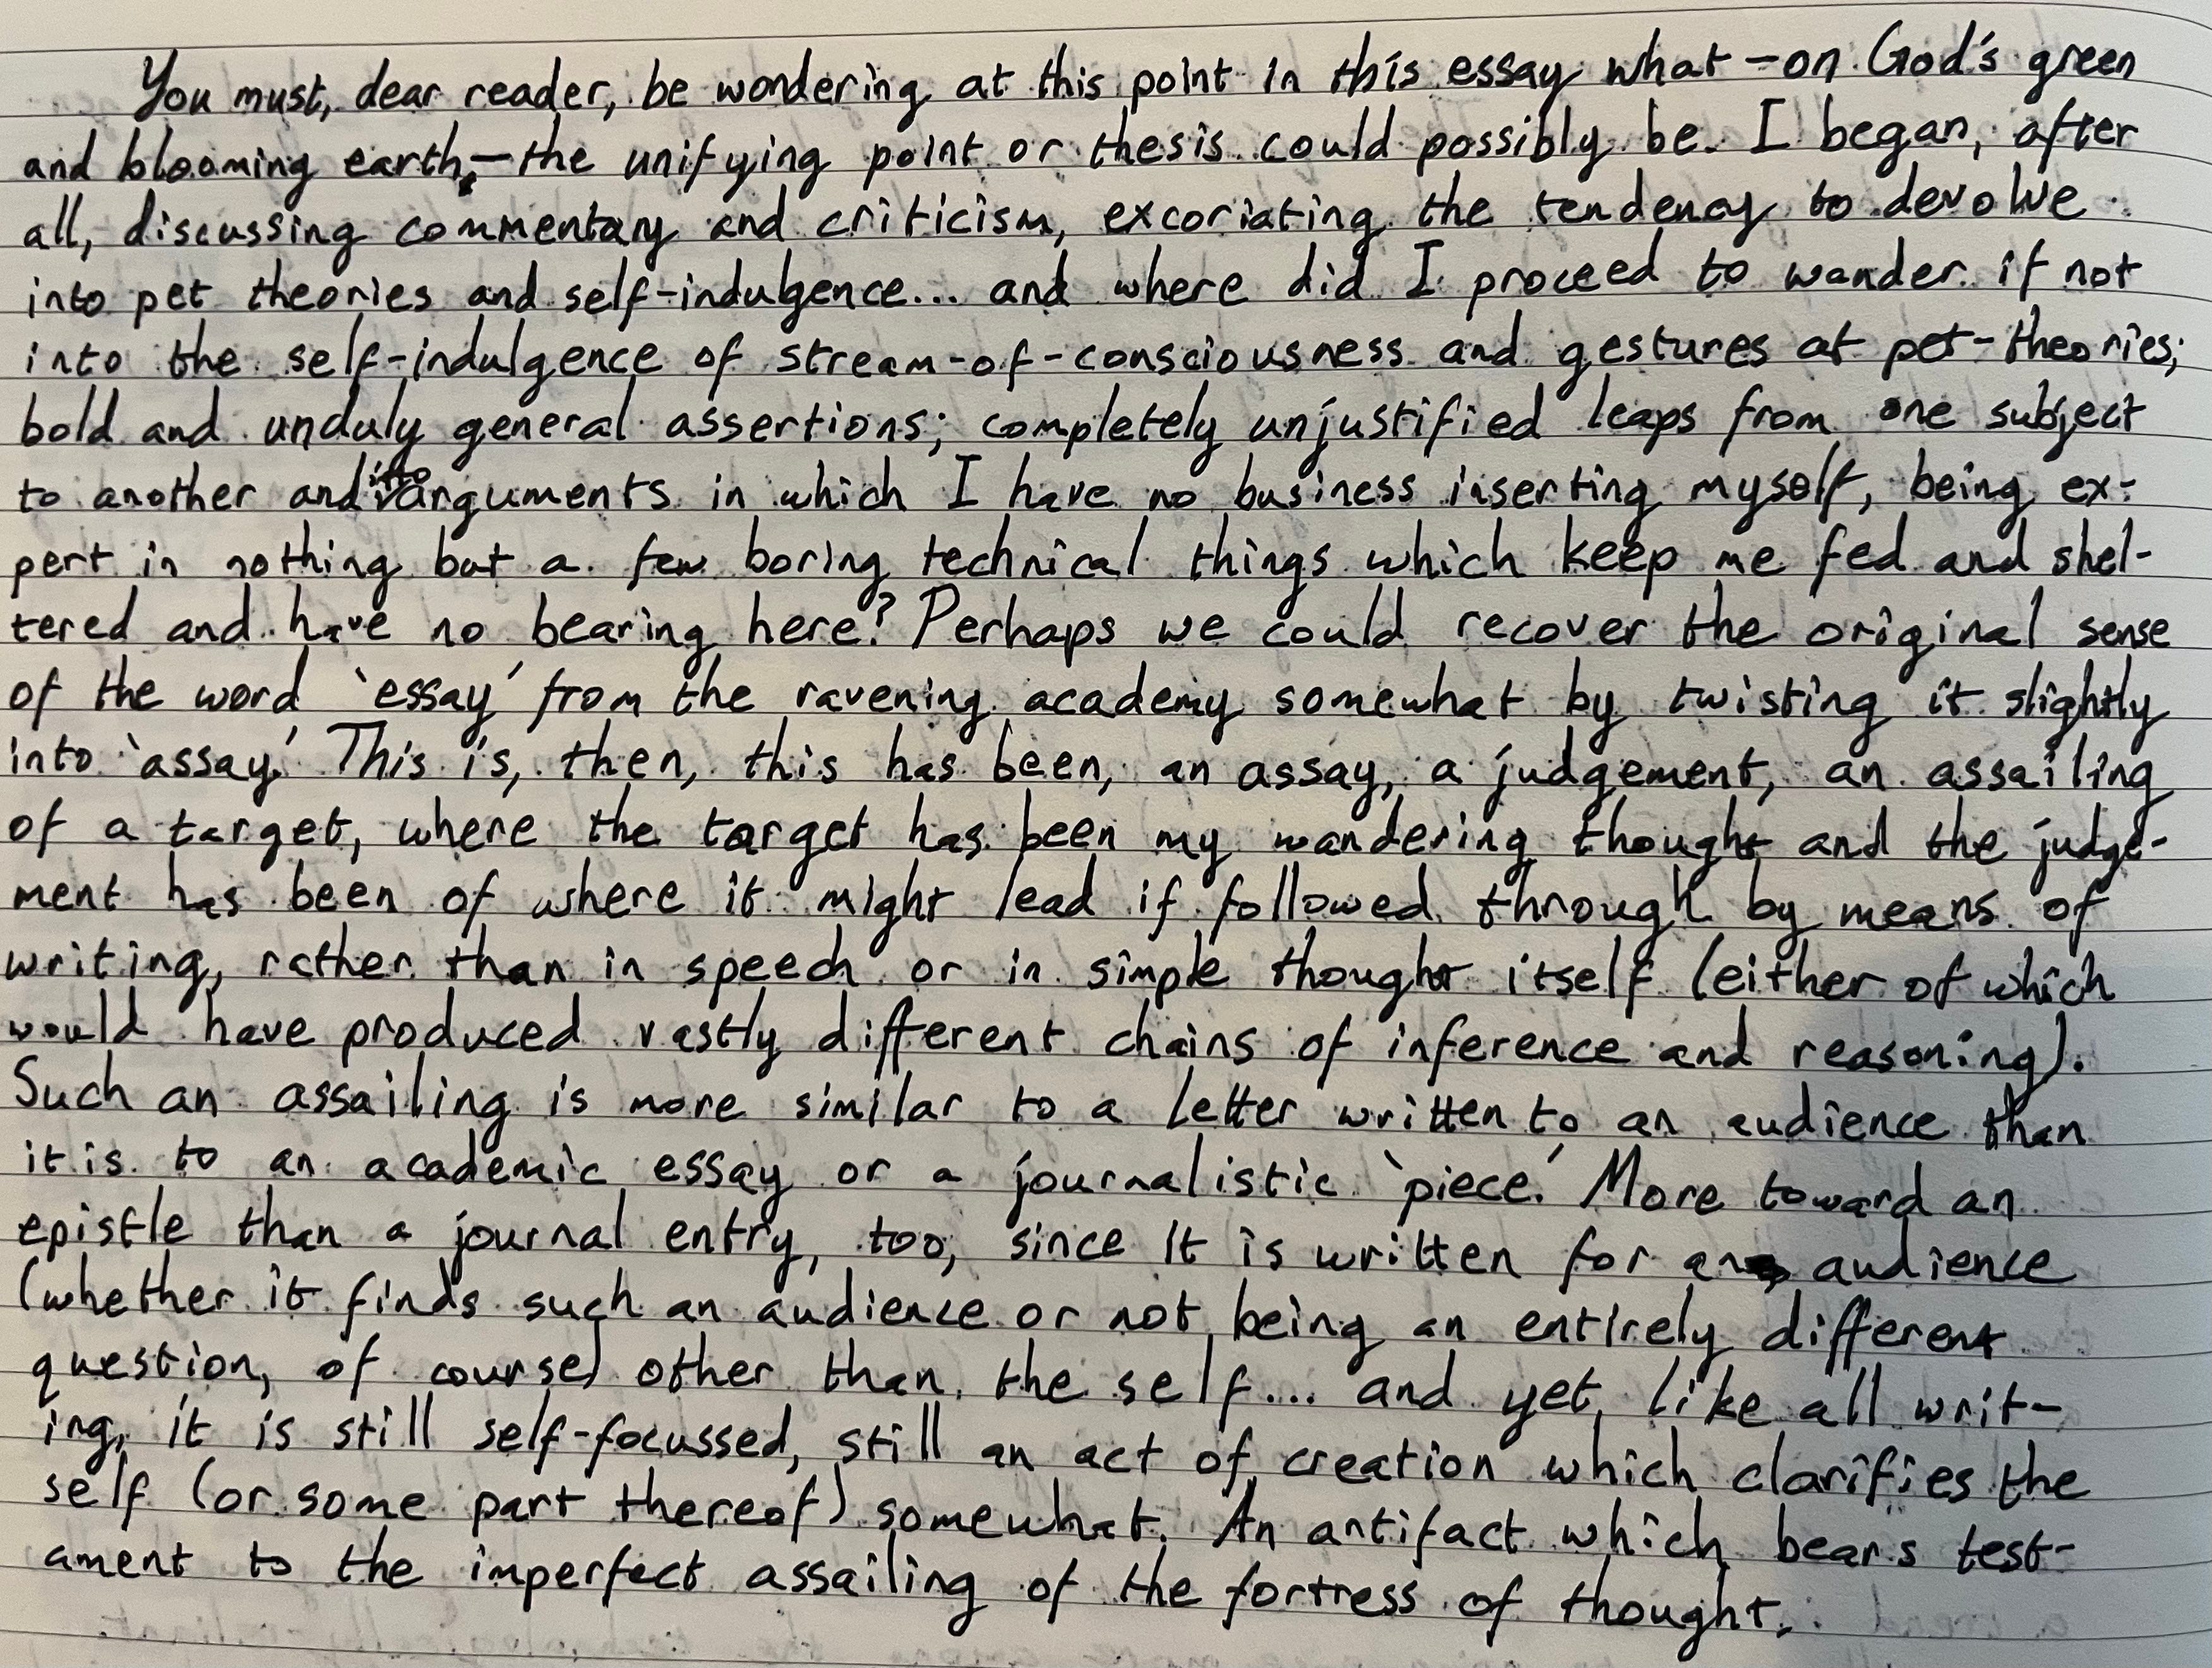 You must, dear reader, be wondering at this point in this essay what —on God's green
and blooming earth,— the unifying point or thesis could possibly be. I began, after
all, discussing commentary and criticism, excoriating the tendency to devolve
into pet theories and self-indulgence... and where did I proceed to wander if not
into the self-indulgence of stream-of-consciousness and gestures at pet-theories;
bold and unduly general assertions; completely unjustified leaps from one subject
to another and into arguments in which I have no business inserting myself, being ex-
pert in nothing but a few boring technical things which keep me fed and shel-
tered and have no bearing here? Perhaps we could recover the original sense
of the word 'essay' from the ravening academy somewhat by twisting it slightly
into 'assay.' This is, then, this has been, an assay, a judgement, an assailing
of a target, where the target has been my wandering thought and the judge-
ment has been of where it might lead if followed through by means of
writing, rather than in speech or in simple thought itself (either of which
would have produced vastly different chains of inference and reasoning).
Such an assailing is more similar to a letter written to an audience than
it is to an academic essay or a journalistic 'piece.' More toward an
epistle than a journal entry, too, since it is written for an audience
(whether it finds such an audience or not, being an entirely different
question, of course) other than the self... and yet, like all writ-
ing, it is still self-focussed, still an act of creation which clarifies the
self (or some part thereof) somewhat. An artifact which bears test-
ament to the imperfect assailing of the fortress of thought.